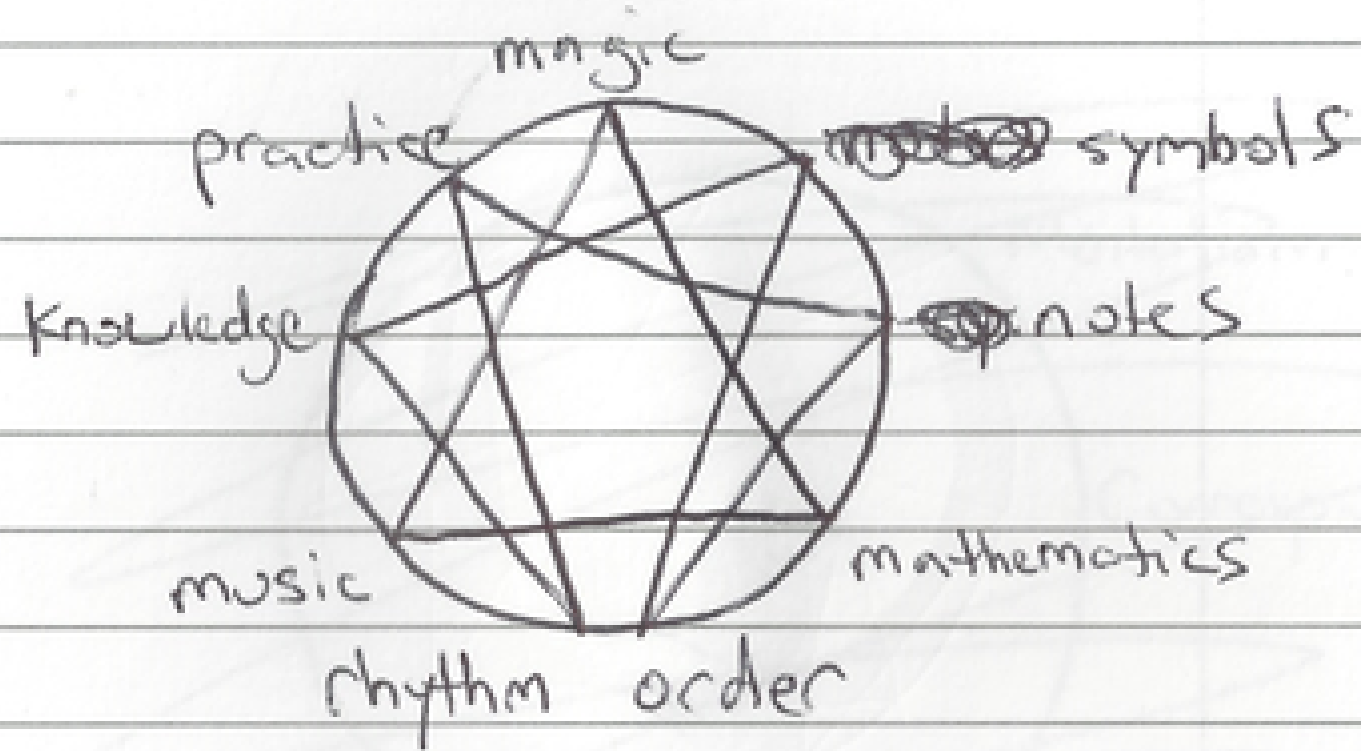 magic
practice symbols
knowledge notes
music mathematics
rhythm order